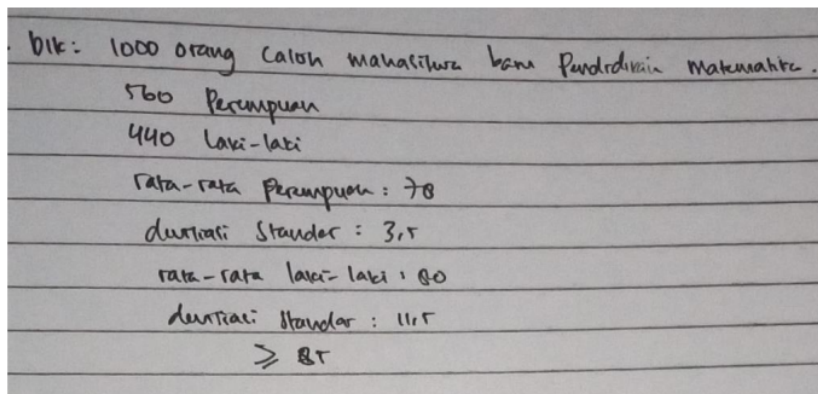 . Dik: 1000 orang Calon mahasiswa baru Pendidikan Matematika.
560 Perempuan
440 Laki-laki
rata-rata Perempuan : 78
deviasi Standar : 3,5
rata-rata laki-laki : 80
deviasi Standar : 11,5
≥ 85